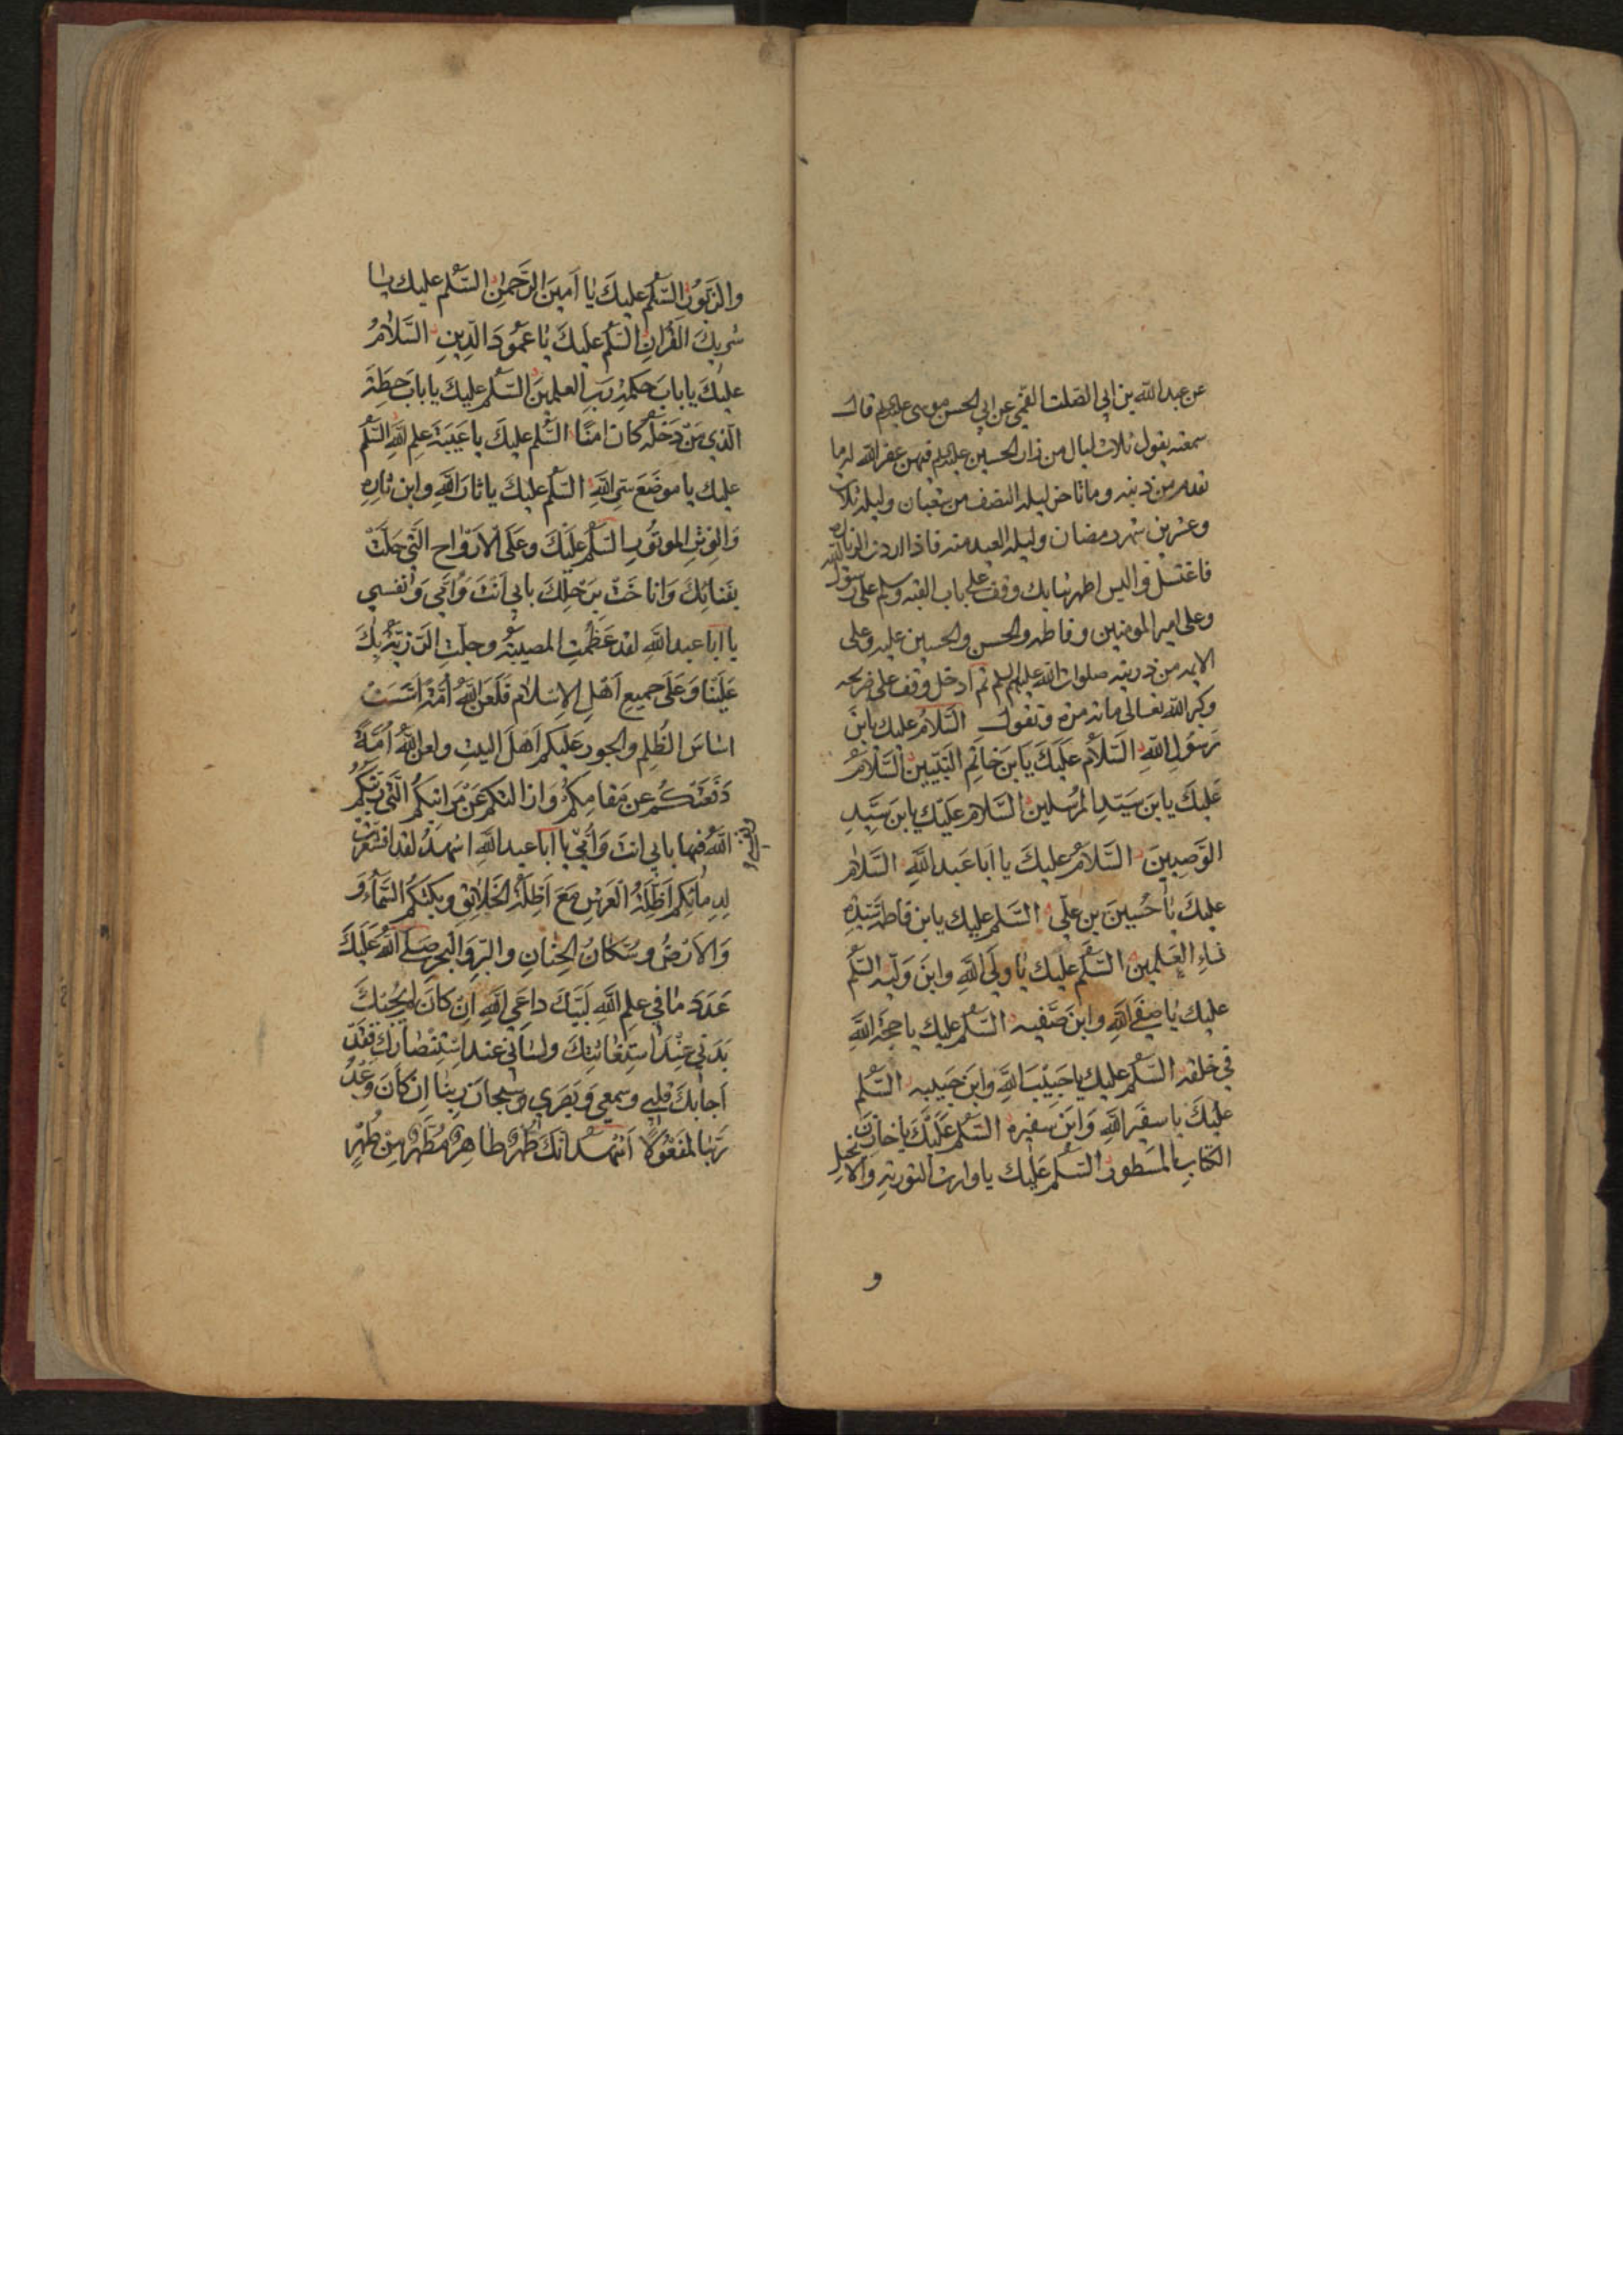 عن عبد الله بن ابي الصلت القمي عن ابي الحسن موسى عليه السلم قال
سمعته يقول ثلاث ليال من زار الحسين عليه السلم فيهن غفر الله له ما
تقدم من ذنبه وما تاخر ليلة النصف من شعبان وليلة ثلاث
وعشرين شهر رمضان وليلة العيد منه فاذا اردت الزيارة
فاغتسل والبس اطهر ثيابك وقف على باب القبه وسلم على رسول الله
وعلى امير المومنين وفاطمه والحسن والحسين عليه وعلى
الايمه من ذريته صلوات الله عليهم السلم ثم ادخل وقف على ضريحه
وكبر الله تعالى مائة مرة وتقول السَّلامُ عليك يابنَ
رَسُولِ اللهِ السَّلامُ عَلَيكَ يَابنَ خاتَمِ النَّبيّينَ السَّلامُ
عَلَيكَ يابنَ سَيّدِ المُرسلينَ السَّلام عَلَيك يابن سَيّدِ
الوَصيينَ السَّلامُ عَليكَ يا اَبا عَبد اللهِ السَّلامُ
عليكَ يا حُسينَ بن عَلي السَّلم عليك يابن فاطمة سَيّدةِ
نساءِ العٰلمينَ السَّلم عليك يا وليَّ اللهِ وابنَ وَليّه السَّلم
عليك يا صفيَّ اللهِ وابنَ صَفيه السَّلم عليك يا حجّة اللهِ
في خلقه السَّلم عليك يا حَبيبَ اللهِ وابنَ حَبيبه السَّلم
عَليكَ يا سفيرَ اللهِ وَابنَ سفيره السَّلم عَلَيكَ يا خازِنَ
الكتابِ المَسطورِ السَّلم عَلَيك يا وارث التوريةِ والانجيل
و
والزبورِ السَّلم عليكَ يا اَمينَ الرَّحمنِ السَّلم عليك يا
شريكَ القُرانِ السَّلم عَليكَ يا عَمُودَ الدّينِ السَّلامُ
عليكَ يا بابَ حكمةِ رَبِّ العلمينَ السَّلم عليكَ يا بابَ حِطّةَ
الّذي مَن دَخَلَه كانَ امنًا السَّلم عليكَ يا عَيبَةَ علمِ اللهِ السَّلم
عليك يا موضَعَ سِرِّ اللهِ السَّلم عليكَ يا ثارَ اللهِ وابن ثارِه
وَالوِترِ الموتُورِ السَّلم عَلَيكَ وعَلَى الاَرواحِ الّتي حَلَّت
بفَنائكَ وَاناخَت برَحلِكَ بابي اَنتَ وَاُمّي وَنفسي
يا ابا عبد اللهِ لقد عَظُمتِ المصيبَة وجلّتِ الرَّزيّةُ بكَ
عَلَينا وَعَلَى جميعِ اَهلِ الاِسلام فَلَعَنَ اللهُ اُمّةً اسّسَت
اسَاسَ الظُلمِ والجورِ عَليكم اَهلَ البيتِ ولعن اللهُ اُمّةً
دَفَعَتكُم عن مَقامِكُم وَازالتكم عَن مَراتبكُم الّتي رتّبكُم
اللهُ فيها بابي انتَ وَاُمّي يا ابا عبد اللهِ اشهدُ لقد اقشعرّت
ونفسي
لدِمائكم اَظِلّةُ العَرشِ مَعَ اَظِلّة الخَلائِق وبكتكُم السَّماءُ وَ
وَالاَرضُ وسُكّانُ الجِنانِ والبَرِّ وَالبَحرِ صَلَّى اللهُ عَلَيكَ
عَدَدَ مٰا في علمِ اللهِ لَبّيكَ داعِيَ اللهِ اِن كانَ لم يُجِبكَ
بَدَني عِندَ استِغاثتِكَ ولساني عند اِستِنصارِكَ فَقَد
اَجابكَ قَلبي وسمعي وَبَصَري وسُبحانَ رَبّنا اِن كانَ وَعدُ
رَبّنا لمَفعُولًا اَشهد انّكَ طُهرٌ طاهِرٌ مُطهّرٌ مِن طُهرٍ